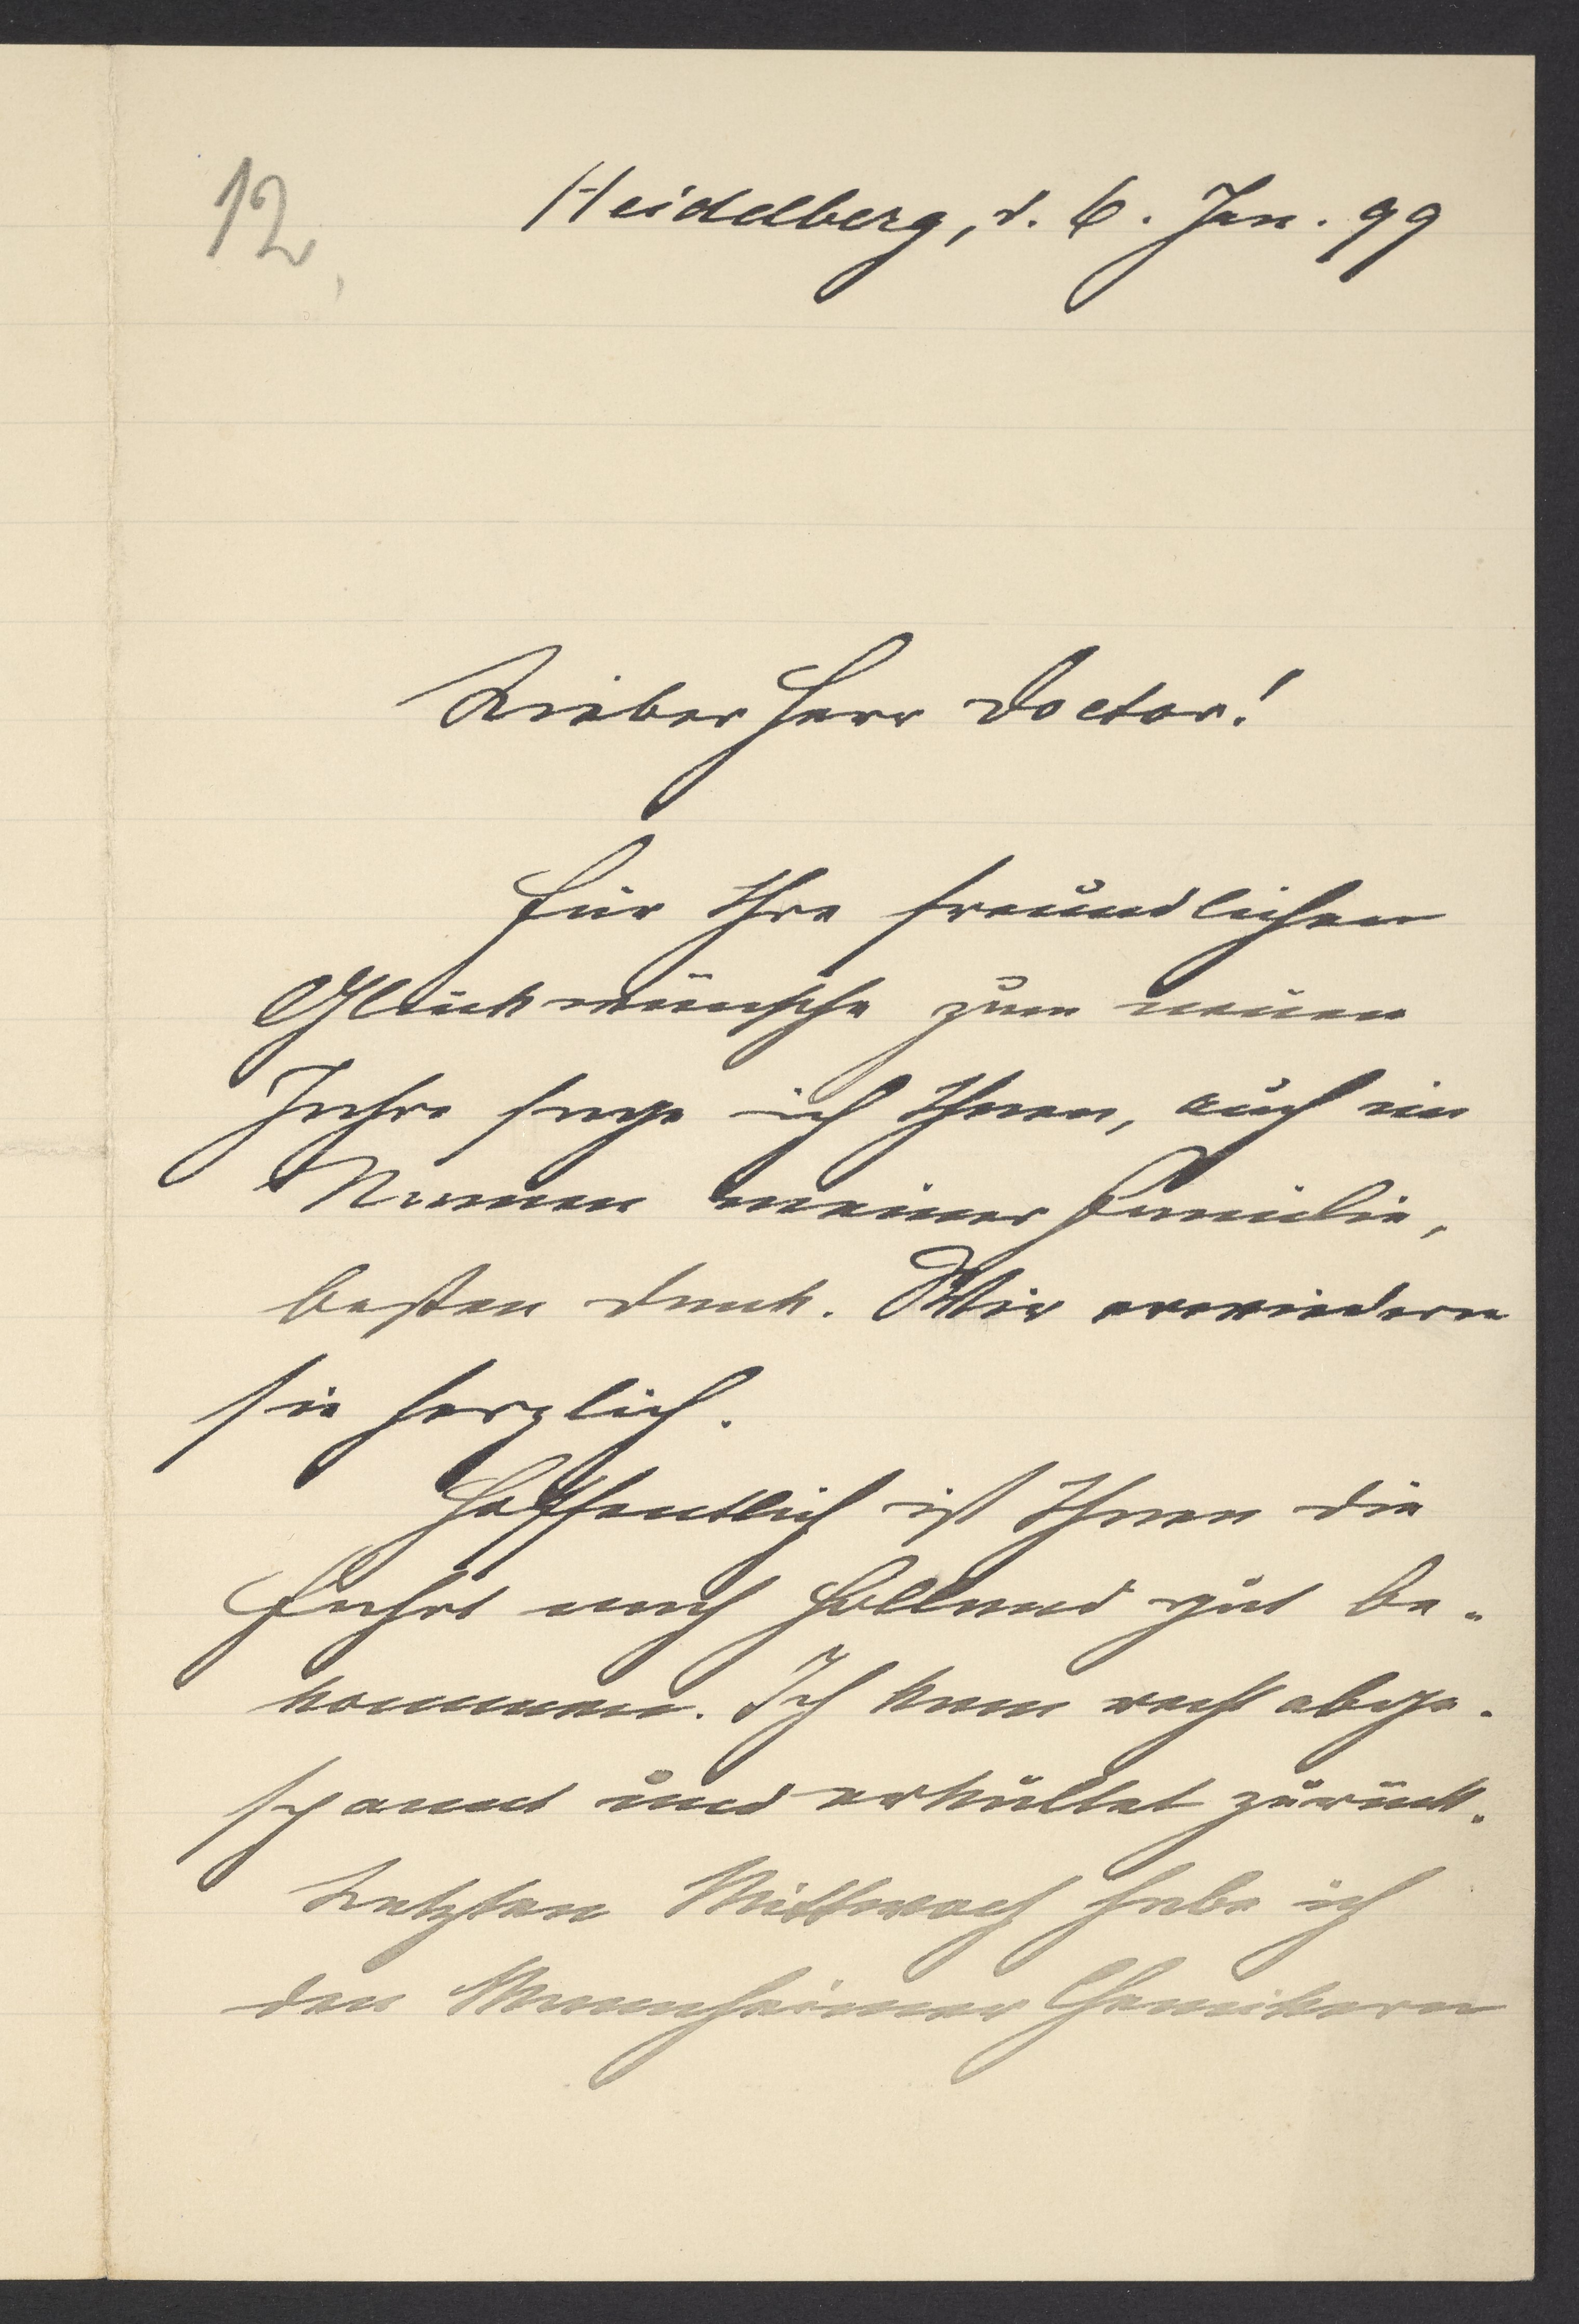 12,
Heidelberg, d. 6. Jan. 99
Lieber Herr Doctor!
Für Ihre freundlichen
Glückwünsche zum neuen
Jahre sage ich Ihnen, auch im
Namen meiner Familie,
besten Dank. Wir erwiedern
sie herzlich.
Hoffentlich ist Ihnen die
Fahrt nach Holland gut be-
kommen. Ich kam recht abge-
spannt und erkältet zurück.
Letzten Mittwoch habe ich
den Mannheimer Chemikern